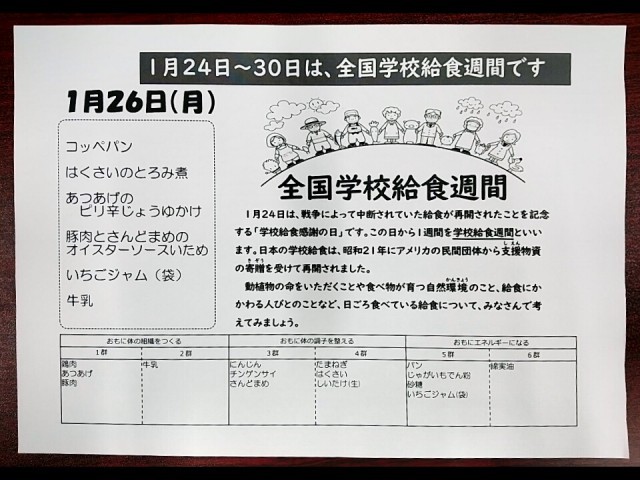 1月24日～30日は、全国学校給食週間です
1月26日(月)
コッペパン
はくさいのとろみ煮
あつあげの
ピリ辛じょうゆかけ
豚肉とさんどまめの
オイスターソースいため
いちごジャム（袋）
牛乳
全国学校給食週間
1月24日は、戦争によって中断されていた給食が再開されたことを記念
する「学校給食感謝の日」です。この日から1週間を学校給食週間といい
ます。日本の学校給食は、昭和21年にアメリカの民間団体から支援物資
の寄贈を受けて再開されました。
動植物の命をいただくことや食べ物が育つ自然環境のこと、給食にか
かわる人びとのことなど、日ごろ食べている給食について、みなさんで考
えてみましょう。
しえん
きぞう
かんきょう
おもに体の組織をつくる おもに体の調子を整える おもにエネルギーになる
1群 2群 3群 4群 5群 6群
鶏肉 牛乳 にんじん たまねぎ パン 綿実油
あつあげ チンゲンサイ はくさい じゃがいもでん粉
豚肉 さんどまめ しいたけ(生) 砂糖
いちごジャム(袋)